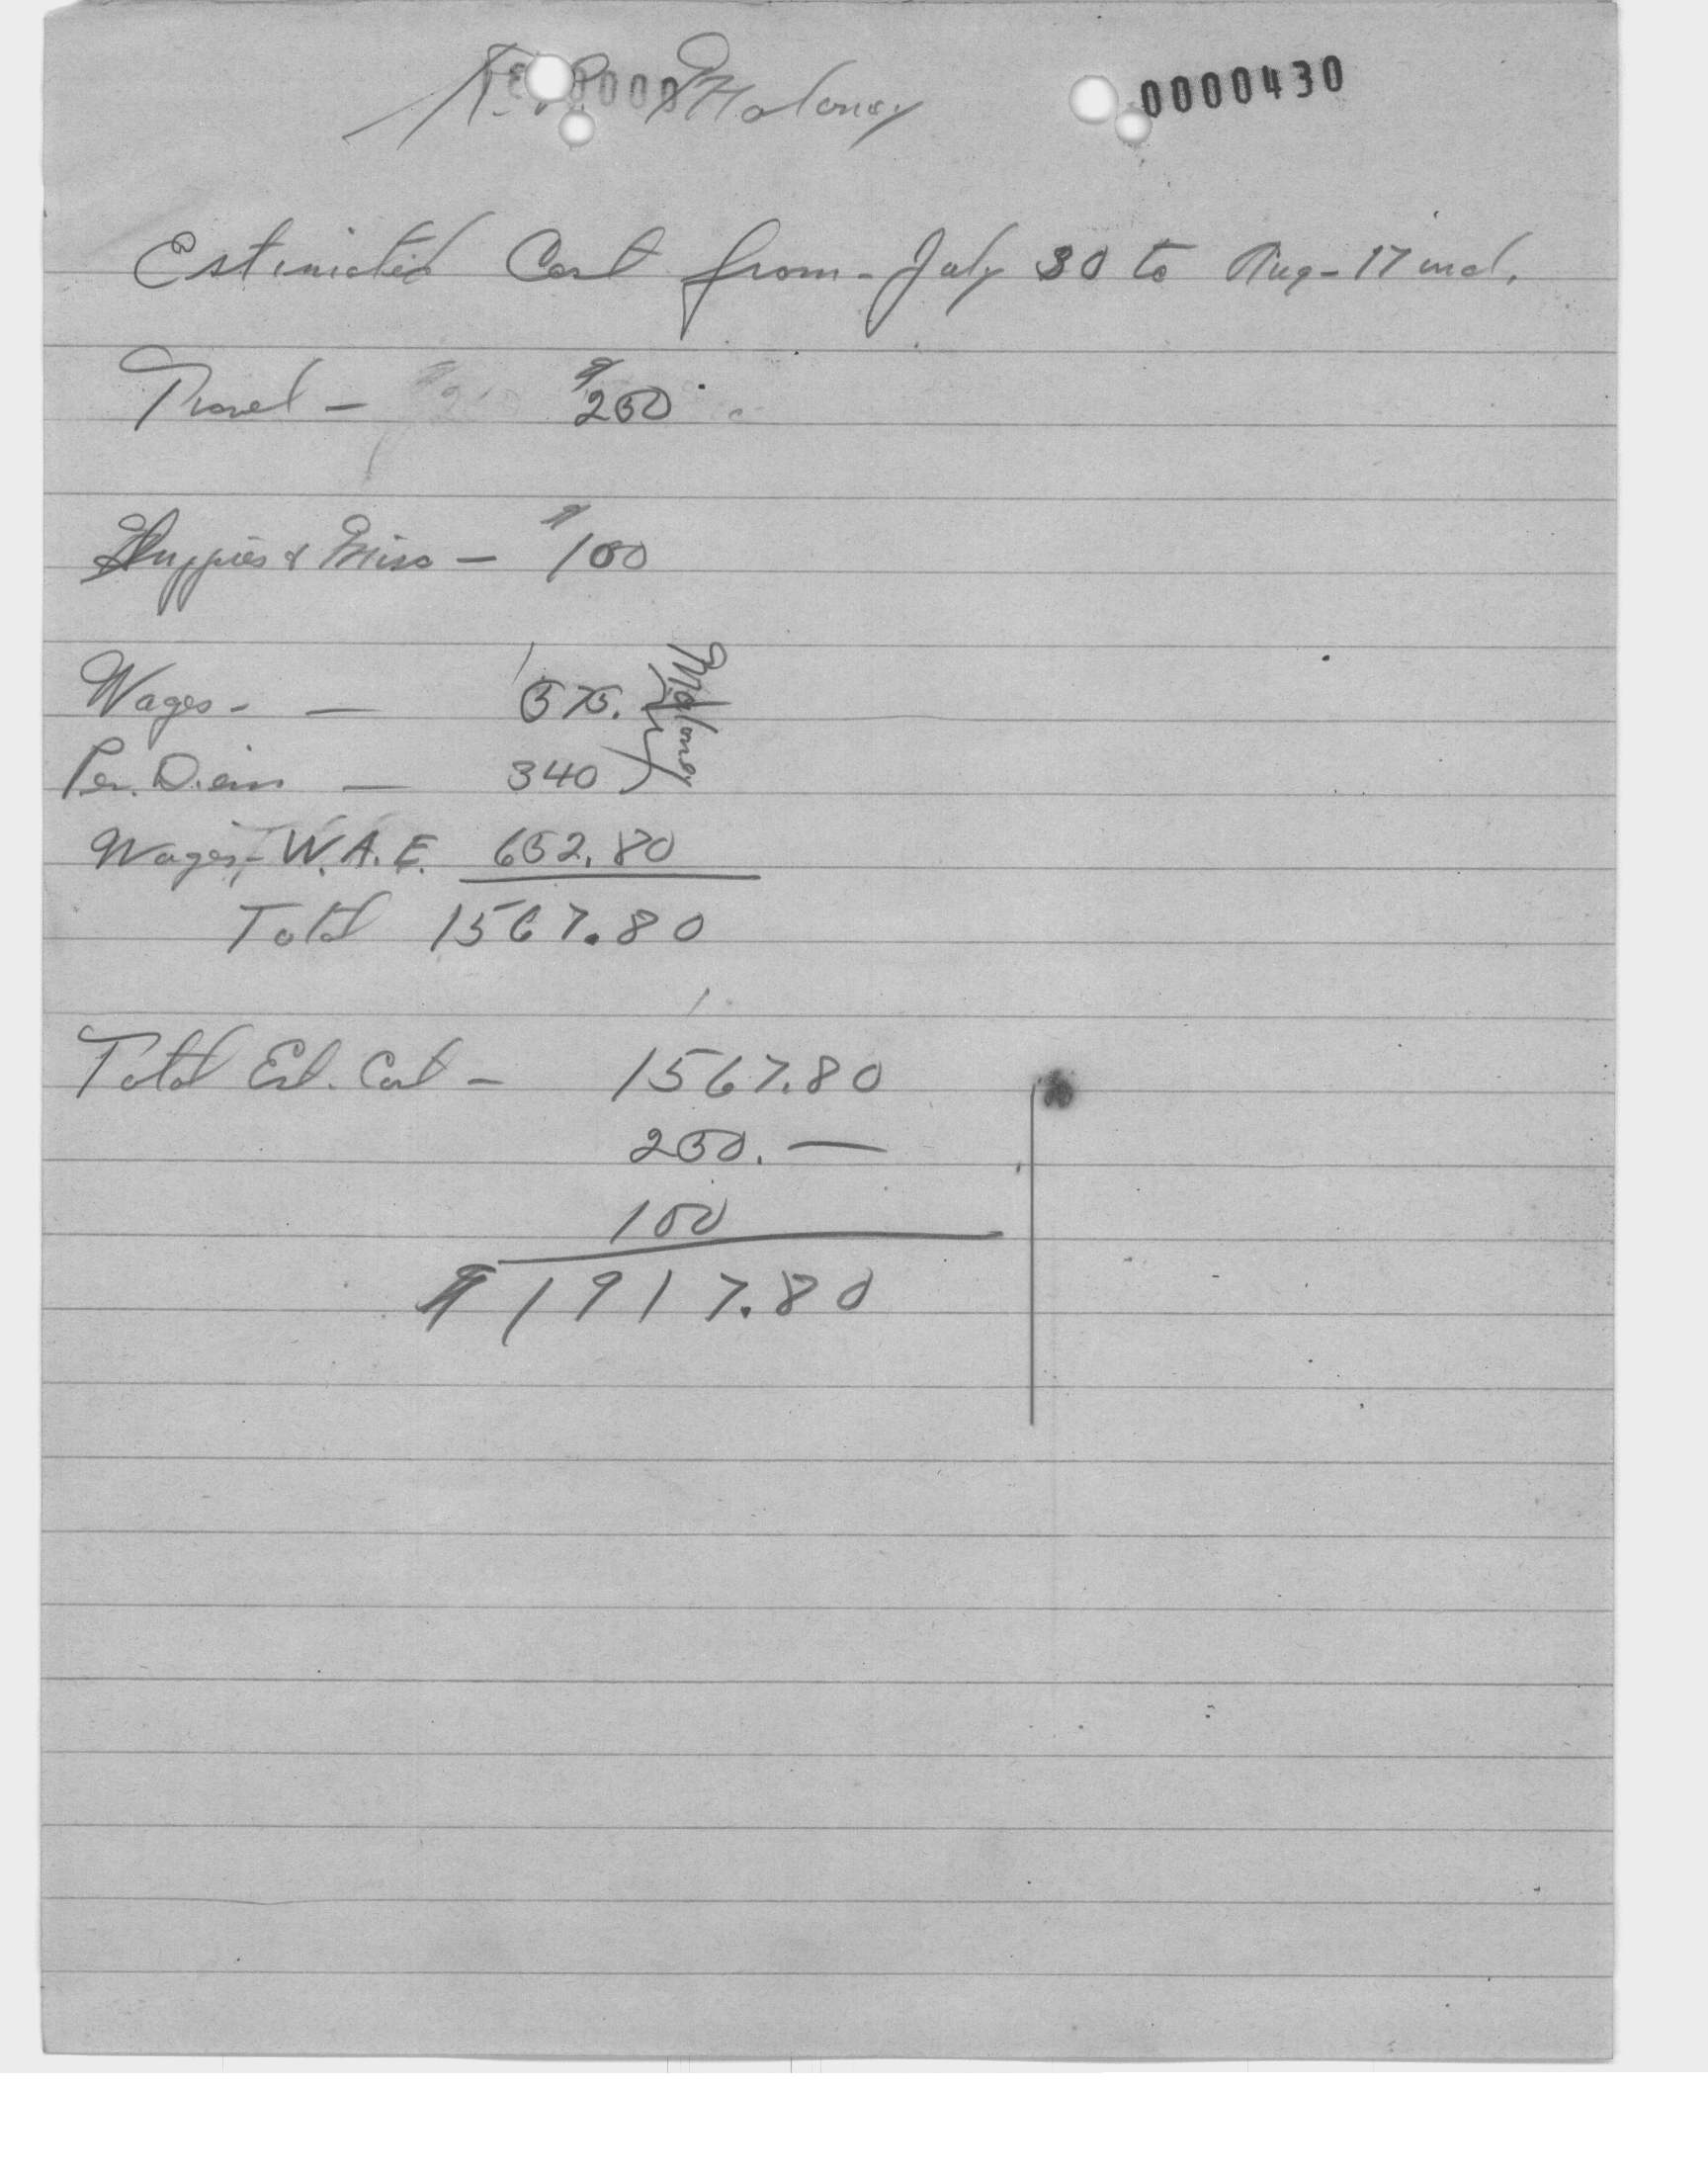 Maloney 0000430
Estimated Cost from - July 30 to Aug - 17 incl.
Travel - $250
Suppies & Misc - $100
Wages - - 575.
Maloney
Per. Diem - 340
Wages, - W.A.E. 652.80
Total 1567.80
Total Est. Cost - 1567.80
250. -
100
$1917.80